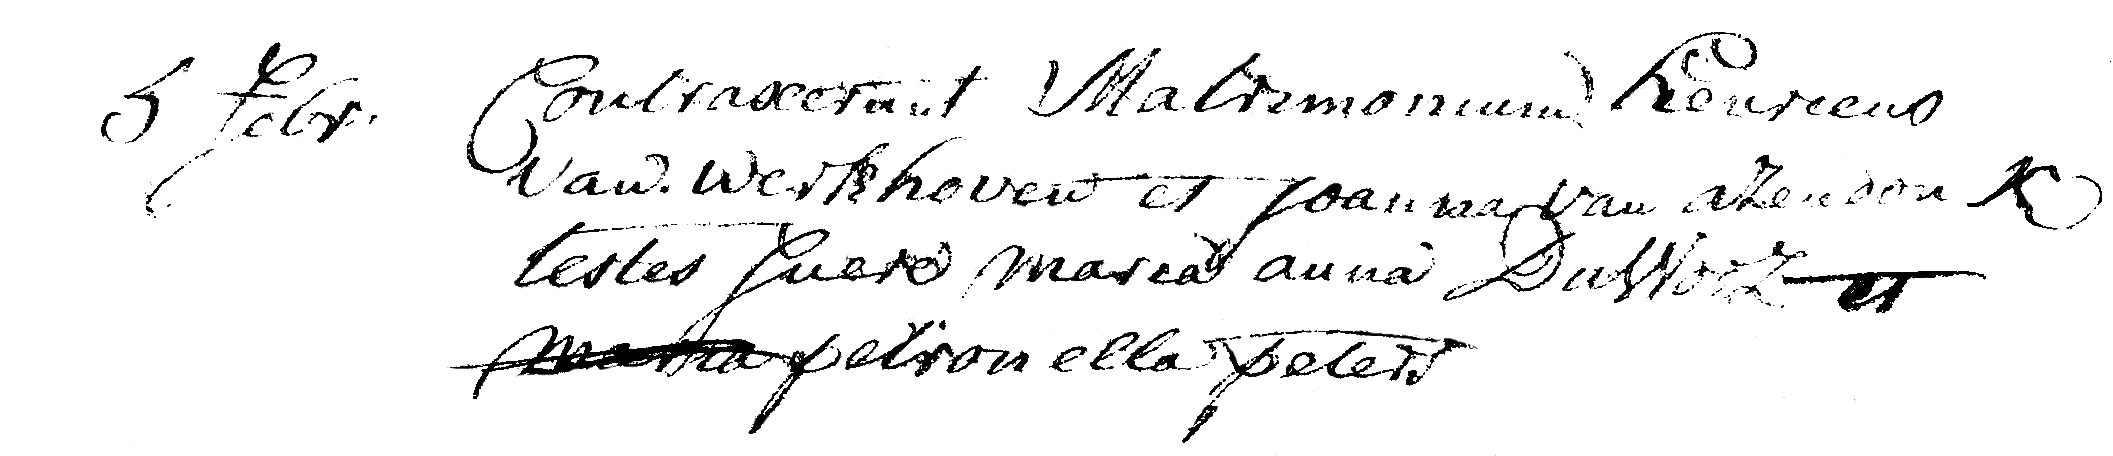 5 Febr. Contraxerunt Matrimonium Henricus
van Werkhoven et Joanna van
testes fuere maria anna et
petronella peters